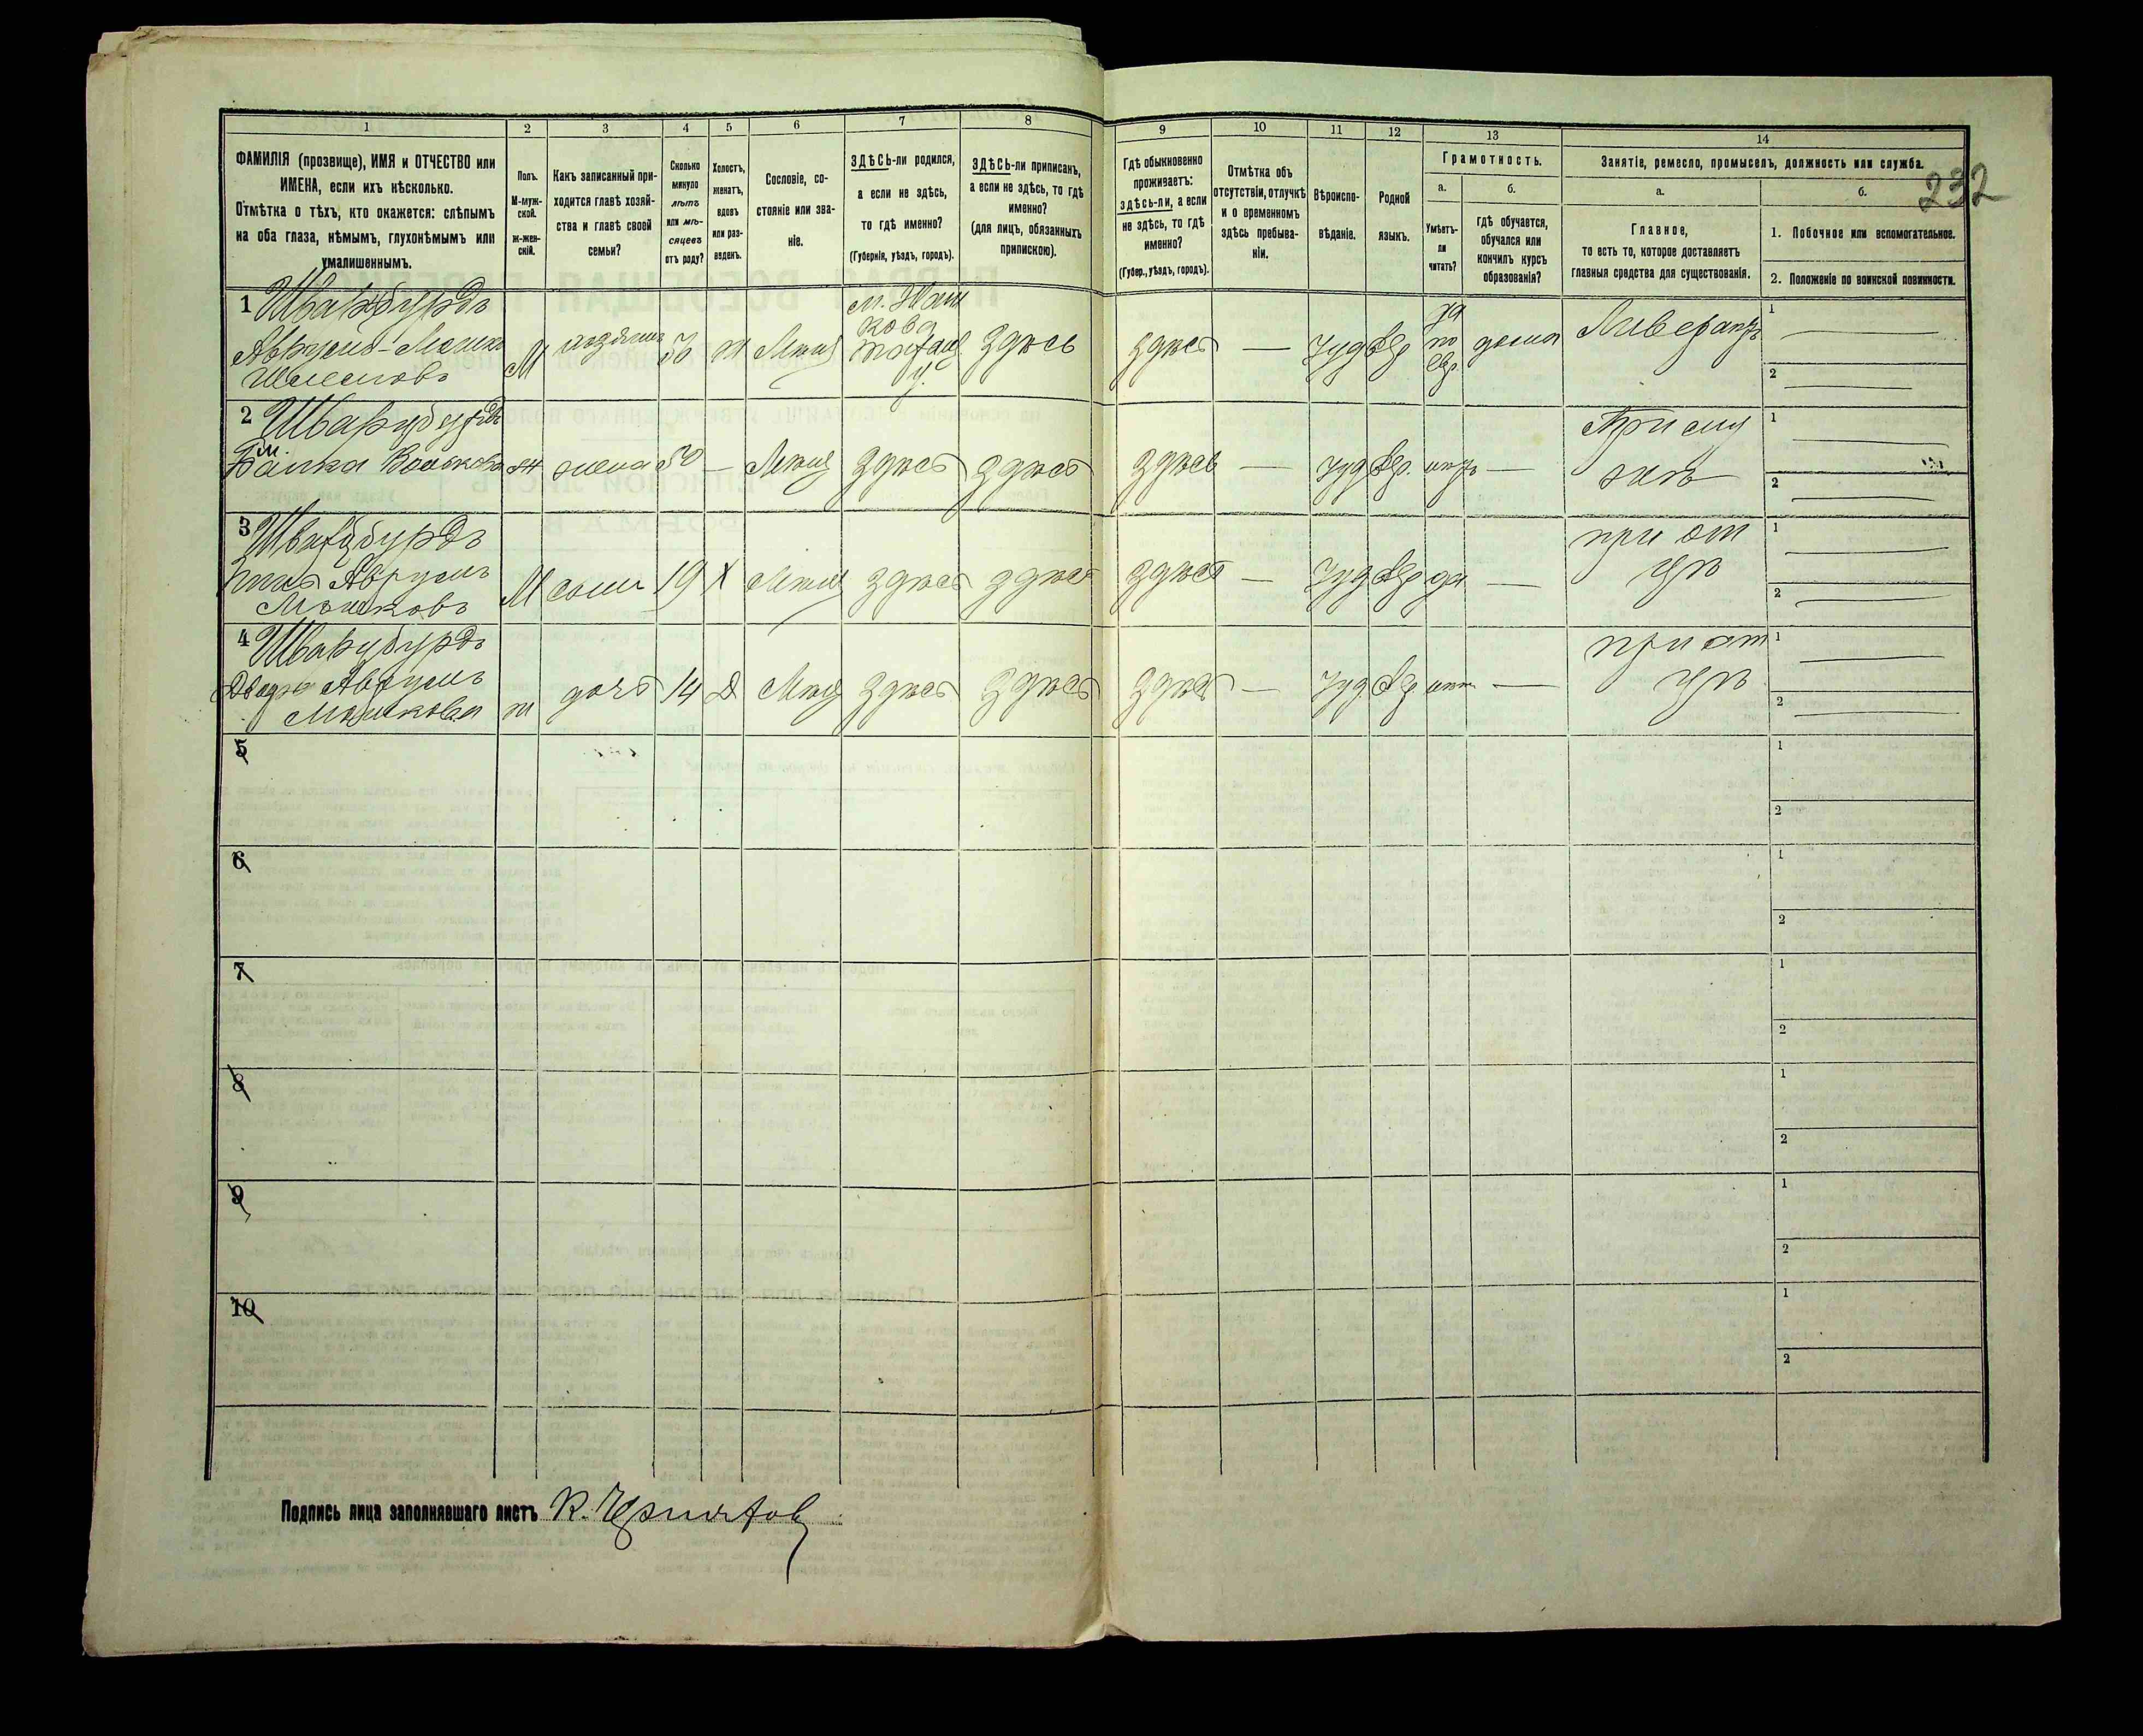 232
1 2 3 4 5 6 7 8 9 10 11 12 13 14
ФАМИЛІЯ (прозвище), ИМЯ и ОТЧЕСТВО или
ИМЕНА, если ихъ нѣсколько.
Отмѣтка о тѣхъ, кто окажется: слѣпымъ
на оба глаза, нѣмымъ, глухонѣмымъ или
умалишеннымъ.
Полъ.
М-муж-
ской.
ж-жен-
скій.
Какъ записанный при-
ходится главѣ хозяй-
ства и главѣ своей
семьи?
Сколько
минуло
лѣтъ
или мѣ-
сяцевъ
отъ роду?
Холостъ,
женатъ,
вдовъ
или раз-
веденъ.
Сословіе, со-
стояніе или зва-
ніе.
ЗДѢСЬ-ли родился,
а если не здѣсь,
то гдѣ именно?
(Губернія, уѣздъ, городъ).
ЗДѢСЬ-ли приписанъ,
а если не здѣсь, то гдѣ
именно?
(для лицъ, обязанныхъ
припискою).
Гдѣ обыкновенно
проживаетъ:
здѣсь-ли, а если
не здѣсь, то гдѣ
именно?
(Губер., уѣздъ, городъ).
Отмѣтка объ
отсутствіи, отлучкѣ
и о временномъ
здѣсь пребыва-
ніи.
Вѣроиспо-
вѣданіе.
Родной
языкъ.
Грамотность.
а.
Умѣетъ-
ли
читать?
б.
гдѣ обучается,
обучался или
кончилъ курсъ
образованія?
Занятіе, ремесло, промыселъ, должность или служба.
а.
Главное,
то есть то, которое доставляетъ
главныя средства для существованія.
б.
1. Побочное или вспомогательное.
2. Положеніе по воинской повинности.
1 Шварцбурдъ
Аврумъ-Мошко
М 50 Мѣщ здѣсь здѣсь — Іуд Евр да по евр дома 1 —
2 —
2 Шварцбурдъ
жена 50 — Мѣщ здѣсь здѣсь здѣсь — Іуд Евр. нѣтъ — 1 —
2 —
3 Шварцбурдъ
Аврумъ
Мошковъ М сынъ 19 Х Мѣщ здѣсь здѣсь здѣсь — Іуд Евр да — при от
цѣ 1 —
2 —
4 Шварцбурдъ
Аврумъ
Мошкова ж дочь 14 Д Мѣщ здѣсь здѣсь здѣсь — Іуд. Евр — при от
цѣ 1 —
2 —
5 1
2
6 1
2
7 1
2
8 1
2
9 1
2
10 1
2
Подпись лица заполнявшаго листъ К.